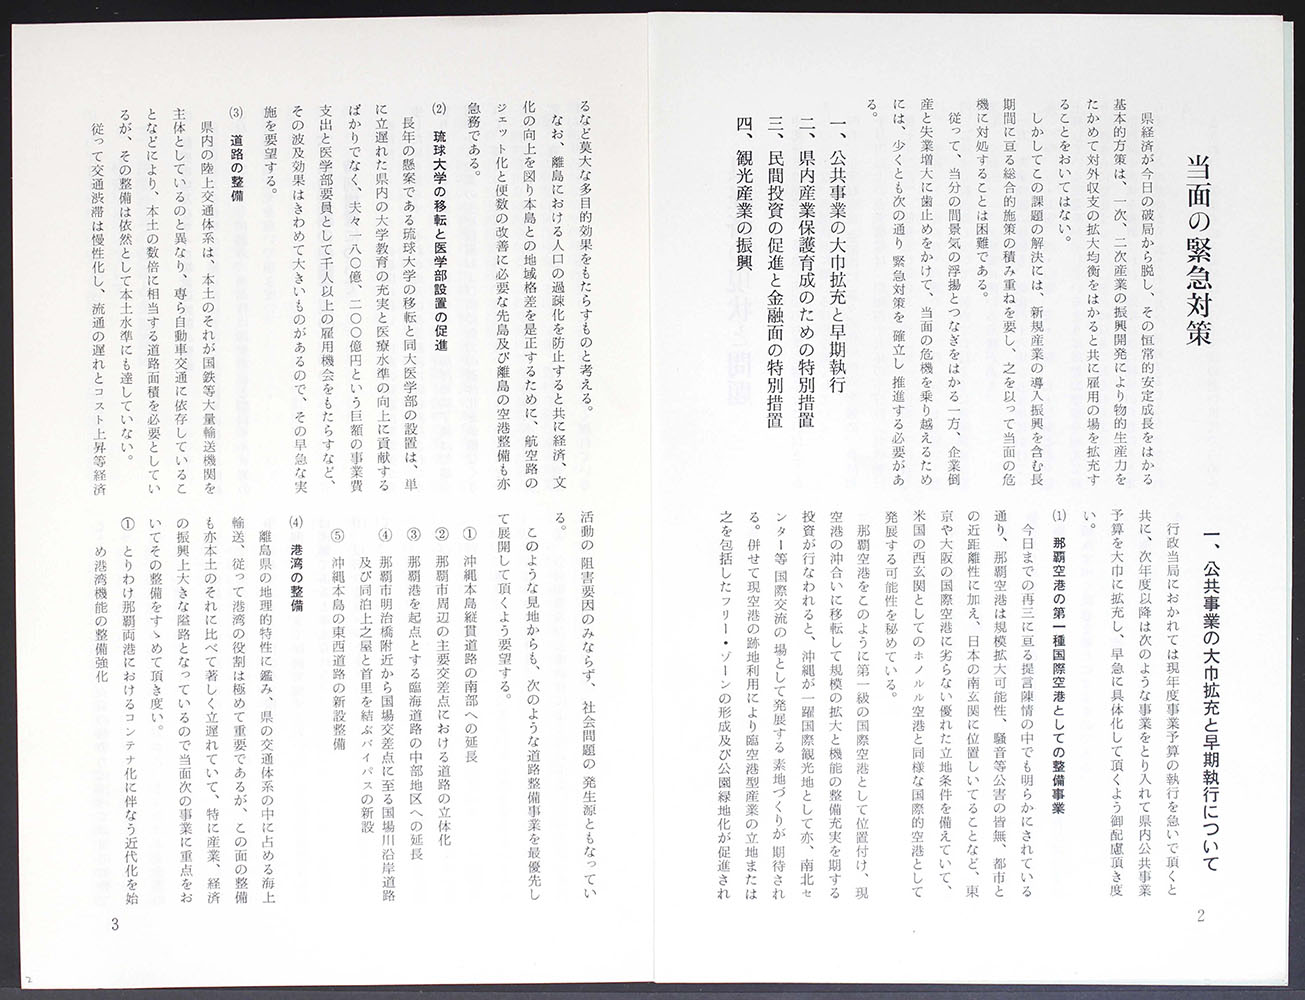 当面の緊急対策
県経済が今日の破局から脱し、その恒常的安定成長をはかる
基本的方策は、一次、二次産業の振興開発により物的生産力を
たかめて対外収支の拡大均衡をはかると共に雇用の場を拡充す
ることをおいてはない。
しかしてこの課題の解決には、新規産業の導入振興を含む長
期間に亘る総合的施策の積み重ねを要し、之を以って当面の危
機に対処することは困難である。
従って、当分の間景気の浮揚とつなぎをはかる一方、企業倒
産と失業増大に歯止めをかけて、当面の危機を乗り越えるため
には、少くとも次の通り緊急対策を確立し推進する必要があ
る。
一、公共事業の大巾拡充と早期執行
二、県内産業保護育成のための特別措置
三、民間投資の促進と金融面の特別措置
四、観光産業の振興
一、公共事業の大巾拡充と早期執行について
行政当局におかれては現年度事業予算の執行を急いで頂くと
共に、次年度以降は次のような事業をとり入れて県内公共事業
予算を大巾に拡充し、早急に具体化して頂くよう御配慮頂き度
い。
⑴ 那覇空港の第一種国際空港としての整備事業
今日までの再三に亘る提言陳情の中でも明らかにされている
通り、那覇空港は規模拡大可能性、騒音等公害の皆無、都市と
の近距離性に加え、日本の南玄関に位置しいてることなど、東
京や大阪の国際空港に劣らない優れた立地条件を備えていて、
米国の西玄関としてのホノルル空港と同様な国際的空港として
発展する可能性を秘めている。
那覇空港をこのように第一級の国際空港として位置付け、現
空港の沖合いに移転して規模の拡大と機能の整備充実を期する
投資が行なわれると、沖縄が一躍国際観光地として亦、南北セ
ンター等国際交流の場として発展する素地づくりが期待され
る。併せて現空港の跡地利用により臨空港型産業の立地または
之を包括したフリー・ゾーンの形成及び公園緑地化が促進され
2
るなど莫大な多目的効果をもたらすものと考える。
なお、離島における人口の過疎化を防止すると共に経済、文
化の向上を図り本島との地域格差を是正するために、航空路の
ジェット化と便数の改善に必要な先島及び離島の空港整備も亦
急務である。
⑵ 琉球大学の移転と医学部設置の促進
長年の懸案である琉球大学の移転と同大医学部の設置は、単
に立遅れた県内の大学教育の充実と医療水準の向上に貢献する
ばかりでなく、夫々一八〇億、二〇〇億円という巨額の事業費
支出と医学部要員として千人以上の雇用機会をもたらすなど、
その波及効果はきわめて大きいものがあるので、その早急な実
施を要望する。
⑶ 道路の整備
県内の陸上交通体系は、本土のそれが国鉄等大量輸送機関を
主体としているのと異なり、専ら自動車交通に依存しているこ
となどにより、本土の数倍に相当する道路面積を必要としてい
るが、その整備は依然として本土水準にも達していない。
従って交通渋滞は慢性化し、流通の遅れとコスト上昇等経済
活動の阻害要因のみならず、社会問題の発生源ともなってい
る。
このような見地からも、次のような道路整備事業を最優先し
て展開して頂くよう要望する。
① 沖縄本島縦貫道路の南部への延長
② 那覇市周辺の主要交差点における道路の立体化
③ 那覇港を起点とする臨海道路の中部地区への延長
④ 那覇市明治橋附近から国場交差点に至る国場川沿岸道路
及び同泊上之屋と首里を結ぶバイパスの新設
⑤ 沖縄本島の東西道路の新設整備
⑷ 港湾の整備
離島県の地理的特性に鑑み、県の交通体系の中に占める海上
輸送、従って港湾の役割は極めて重要であるが、この面の整備
も亦本土のそれに比べて著しく立遅れていて、特に産業、経済
の振興上大きな隘路となっているので当面次の事業に重点をお
いてその整備をすゝめて頂き度い。
① とりわけ那覇両港におけるコンテナ化に伴なう近代化を始
め港湾機能の整備強化
3
2